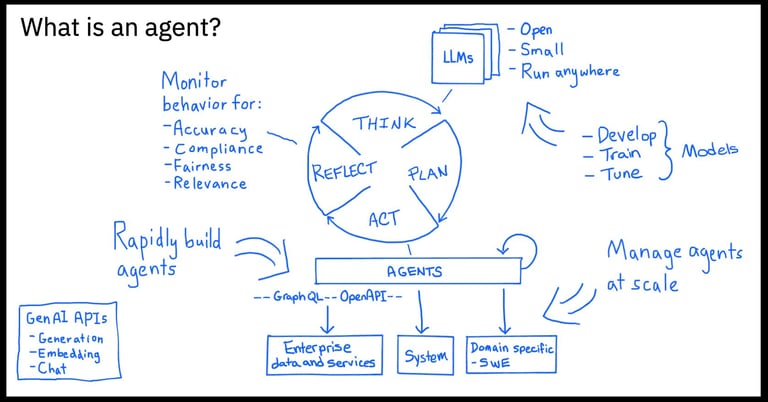 What is an agent?
LLMs
- Open
- Small
- Run anywhere
Monitor
behavior for:
- Accuracy
- Compliance
- Fairness
- Relevance
THINK
REFLECT
PLAN
ACT
- Develop
- Train
- Tune
Models
Rapidly build
agents
AGENTS
Manage agents
at scale
-- GraphQL -- OpenAPI --
GenAI APIs
- Generation
- Embedding
- Chat
Enterprise
data and services
System
Domain specific
- SWE